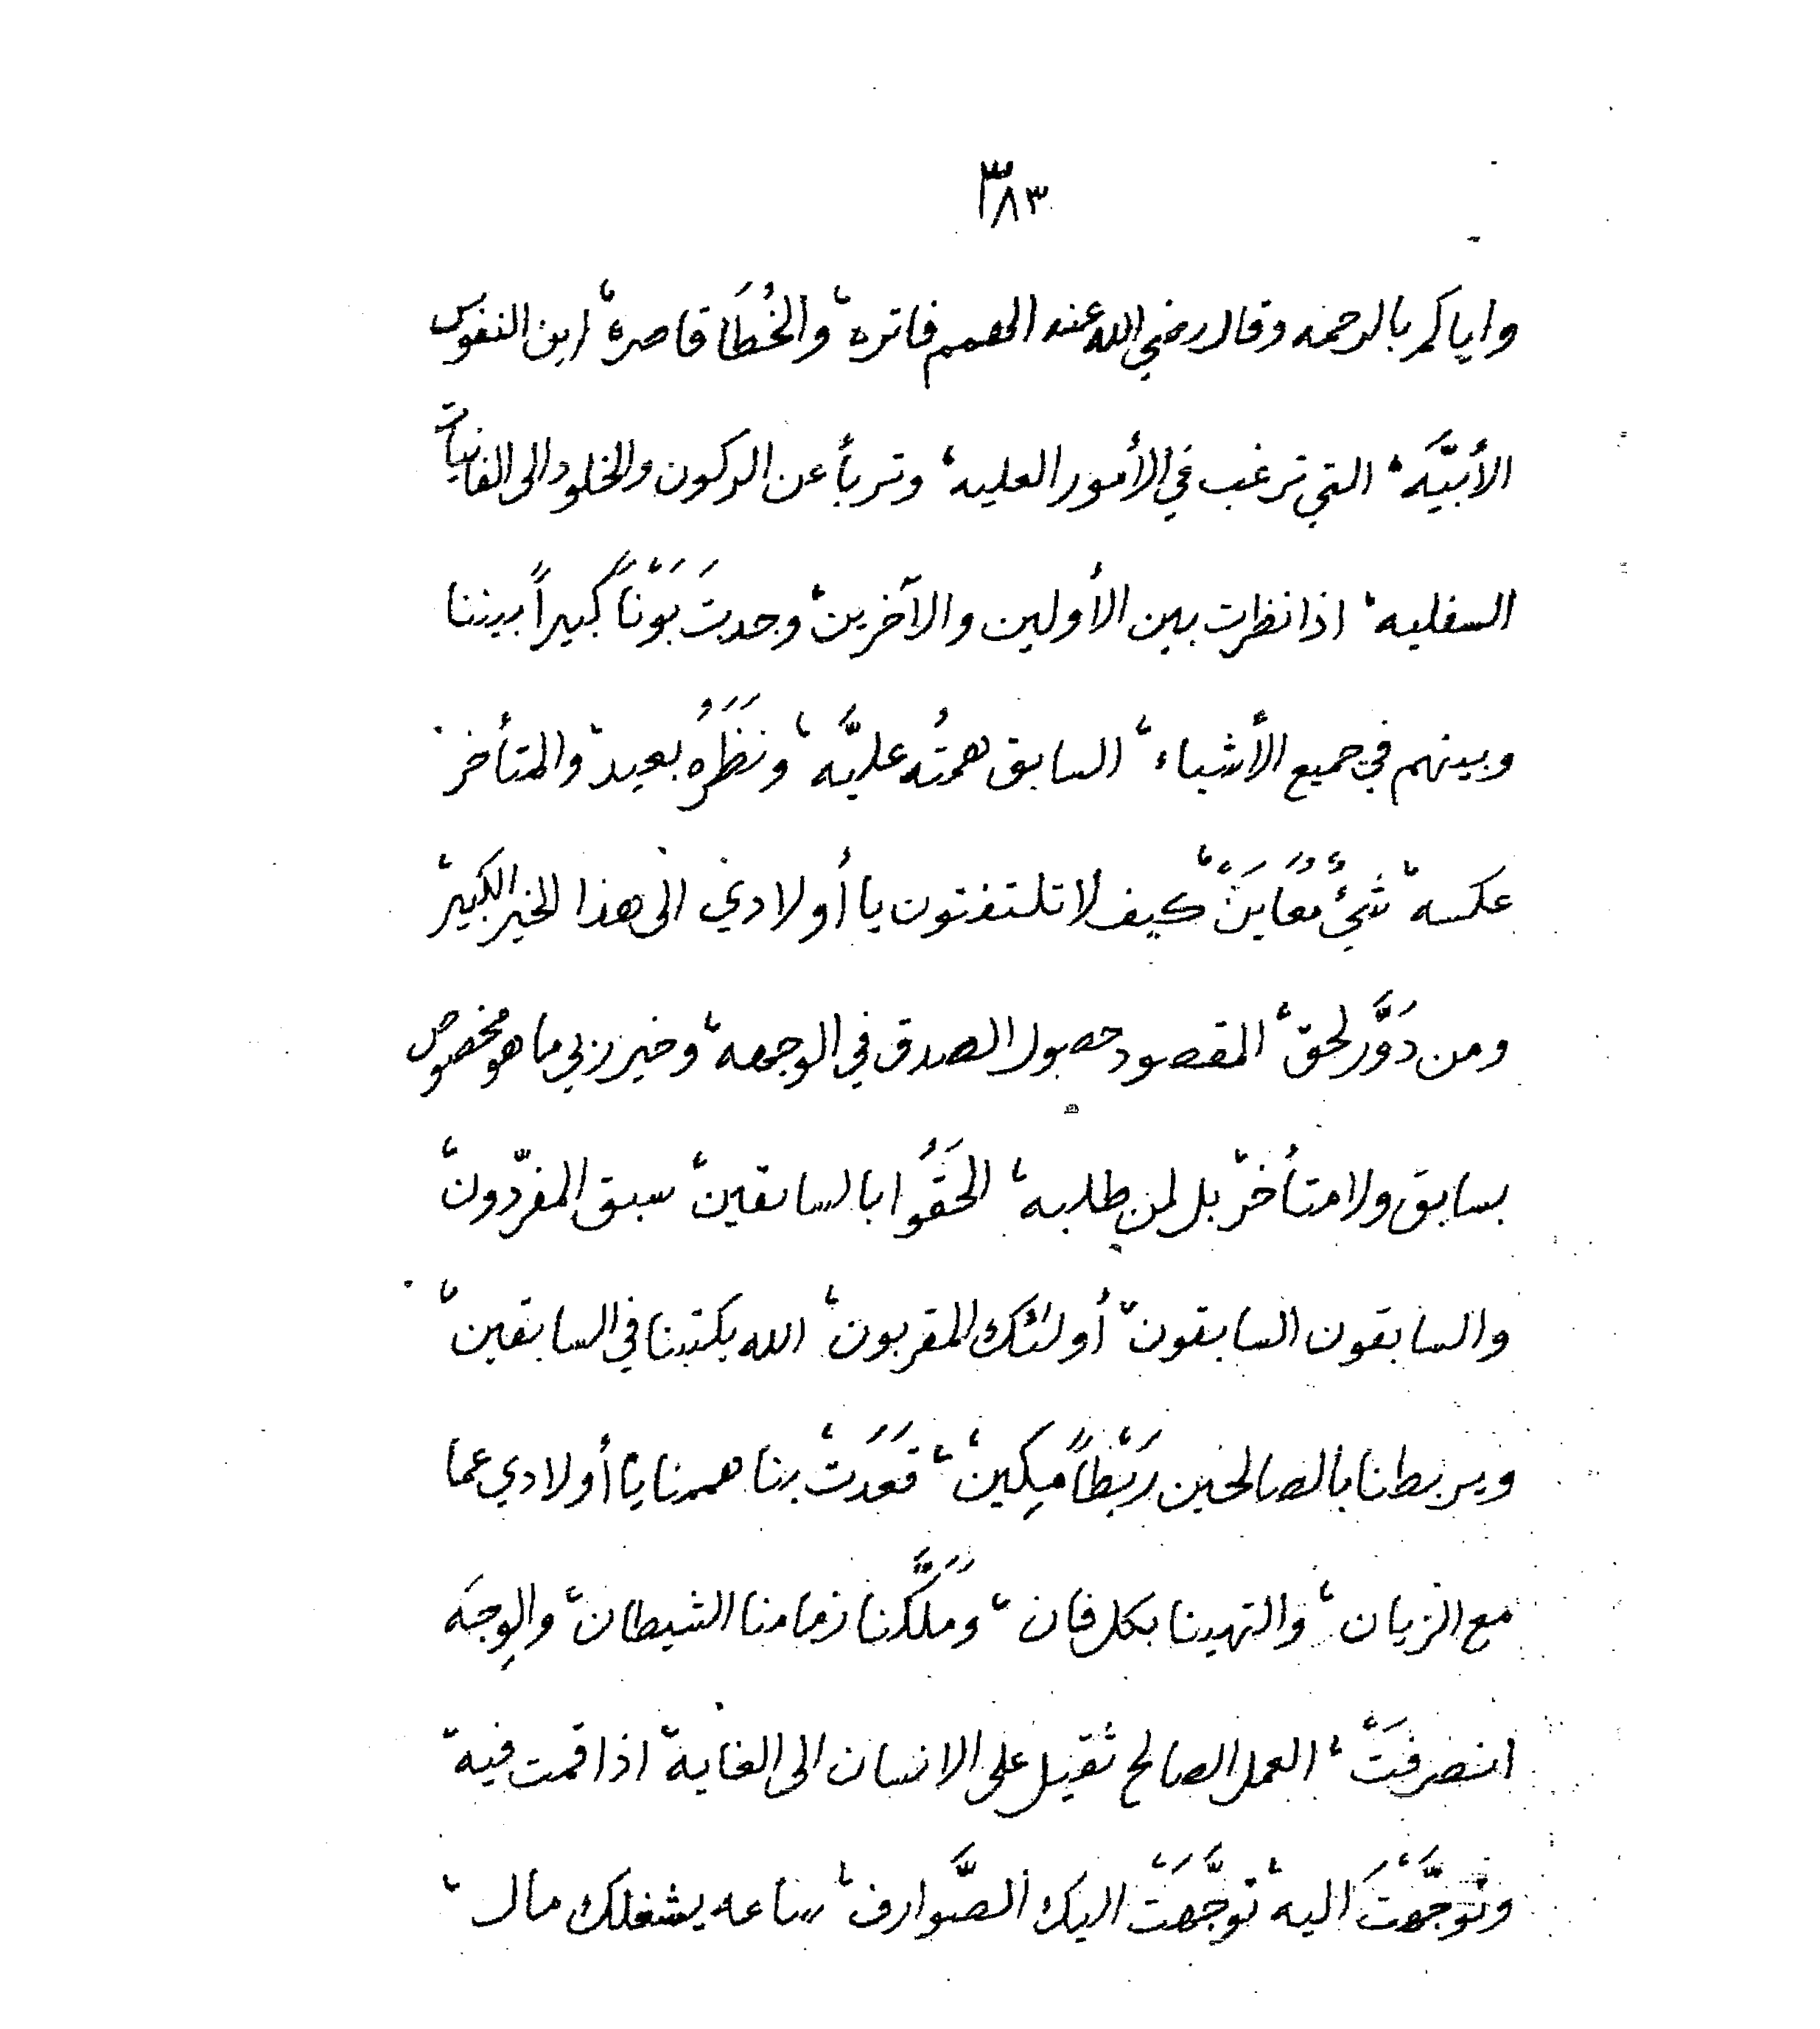 ٣٨٣
واياكم بالرحمه وقال رضي الله عنه الهمم فاتره، والخُطَا قاصرة، اين النفوس
الأبيَّه، التي ترغب في الأمور العليه، وتربأ عن الركون والخلود الى الفانيات
السفليه، اذا نظرت بين الأولين والآخرين، وجدتَ بَوْناً كبيراً بيننا
وبينهم في جميع الأشياء، السابق همتُه عليَّه، ونَظَرُه بعيد، والمتأخر
عكسه، شيءٌ مُعَايَنْ، كيف لا تلتفتون يا أولادي الى هذا الخير الكبير،
ومن دَوَّر لحق، المقصود حصول الصدق في الوجهه، وخير ربي ما هو مخصوص
بسابق ولا متأخر، بل لمن طلبه، الحَقُوا بالسابقين، سبق المفرّدون،
والسابقون السابقون، أولئك المقربون، الله يكتبنا في السابقين،
ويربطنا بالصالحين رَبْطاً مِكِينْ، قَعَدَتْ بنا هممنا يا أولادي عما
مع الزيان، والتهينا بكل فان، ومَلَّكنا زمامنا الشيطان، والوِجهَه
انصرفَتْ، العمل الصالح ثقيل على الانسان الى الغاية، اذا قمت فيه،
وتَوجَّهْتَ اليه، توجَّهَتْ اليك الصَّوارف، ساعه يشغلك مال،